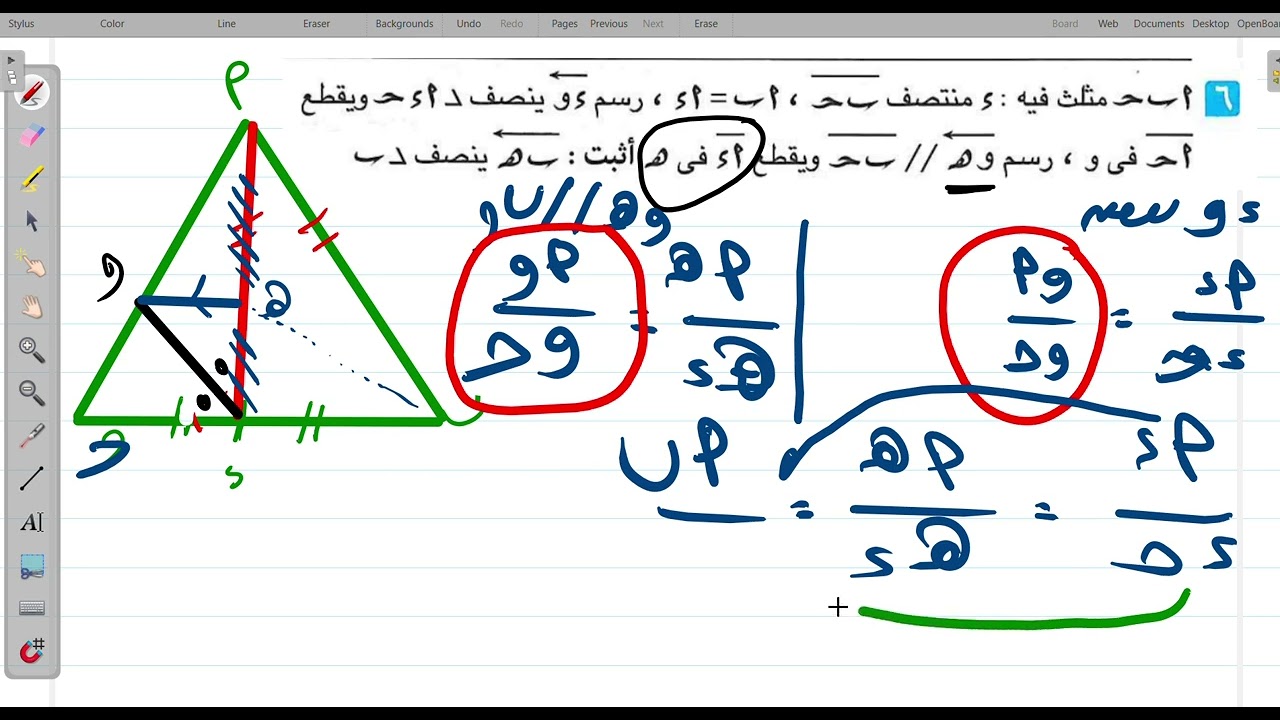 Stylus Color Line Eraser Backgrounds Undo Redo Pages Previous Next Erase Board Web Documents Desktop OpenBoar
٦ أ ب حـ مثلث فيه : ء منتصف ب حـ ، أ ب = أ ء ، رسم ء و ينصف د أ ء حـ ويقطع
أ حـ فى و ، رسم و هـ // ب حـ ويقطع أ ء فى هـ أثبت : ب هـ ينصف د ب
و هـ // ب
ء و ينصف
أ و / و حـ = أ هـ / هـ ء
أ و / و حـ = أ ء / ء حـ
أ ب = أ هـ / هـ ء = أ ء / ء حـ
أ
و
هـ
حـ
ء
ب
AI